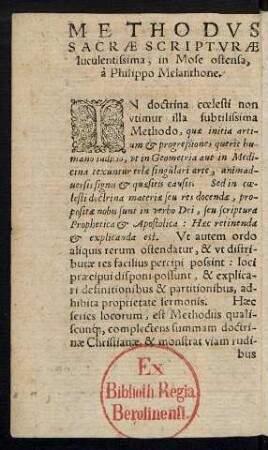 METHODVS
SACRÆ SCRIPTVRÆ
luculentissima, in Mose ostensa,
à Philippo Melanthone.
IN doctrina cœlesti non
vtimur illa subtilissima
Methodo, quæ initia artiũ
um & progressiones querit hu-
mano iudicio, vt in Geometria aut in Medi-
cina texuntur singulari arte, animad-
uersis signis & quæsitis causis. Sed in cœ-
lesti doctrina materiæ seu res docendæ, pro-
positæ nobis sunt in verbo Dei, seu scriptura
Prophetica & Apostolica: Hæc retinenda
& explicanda est. Vt autem ordo
aliquis rerum ostendatur, & vt distri-
butæ res facilius percipi possint: loci
præcipui disponi possunt, & explica-
ri definitionibus & partitionibus, ad-
hibita proprietate sermonis. Hæc
series locorum, est Methodus quali-
scunq;, complectens summam doctri-
næ Christianæ & monstrat viam rudi-
bus
Ex
Biblioth. Regia
Berolinensi.